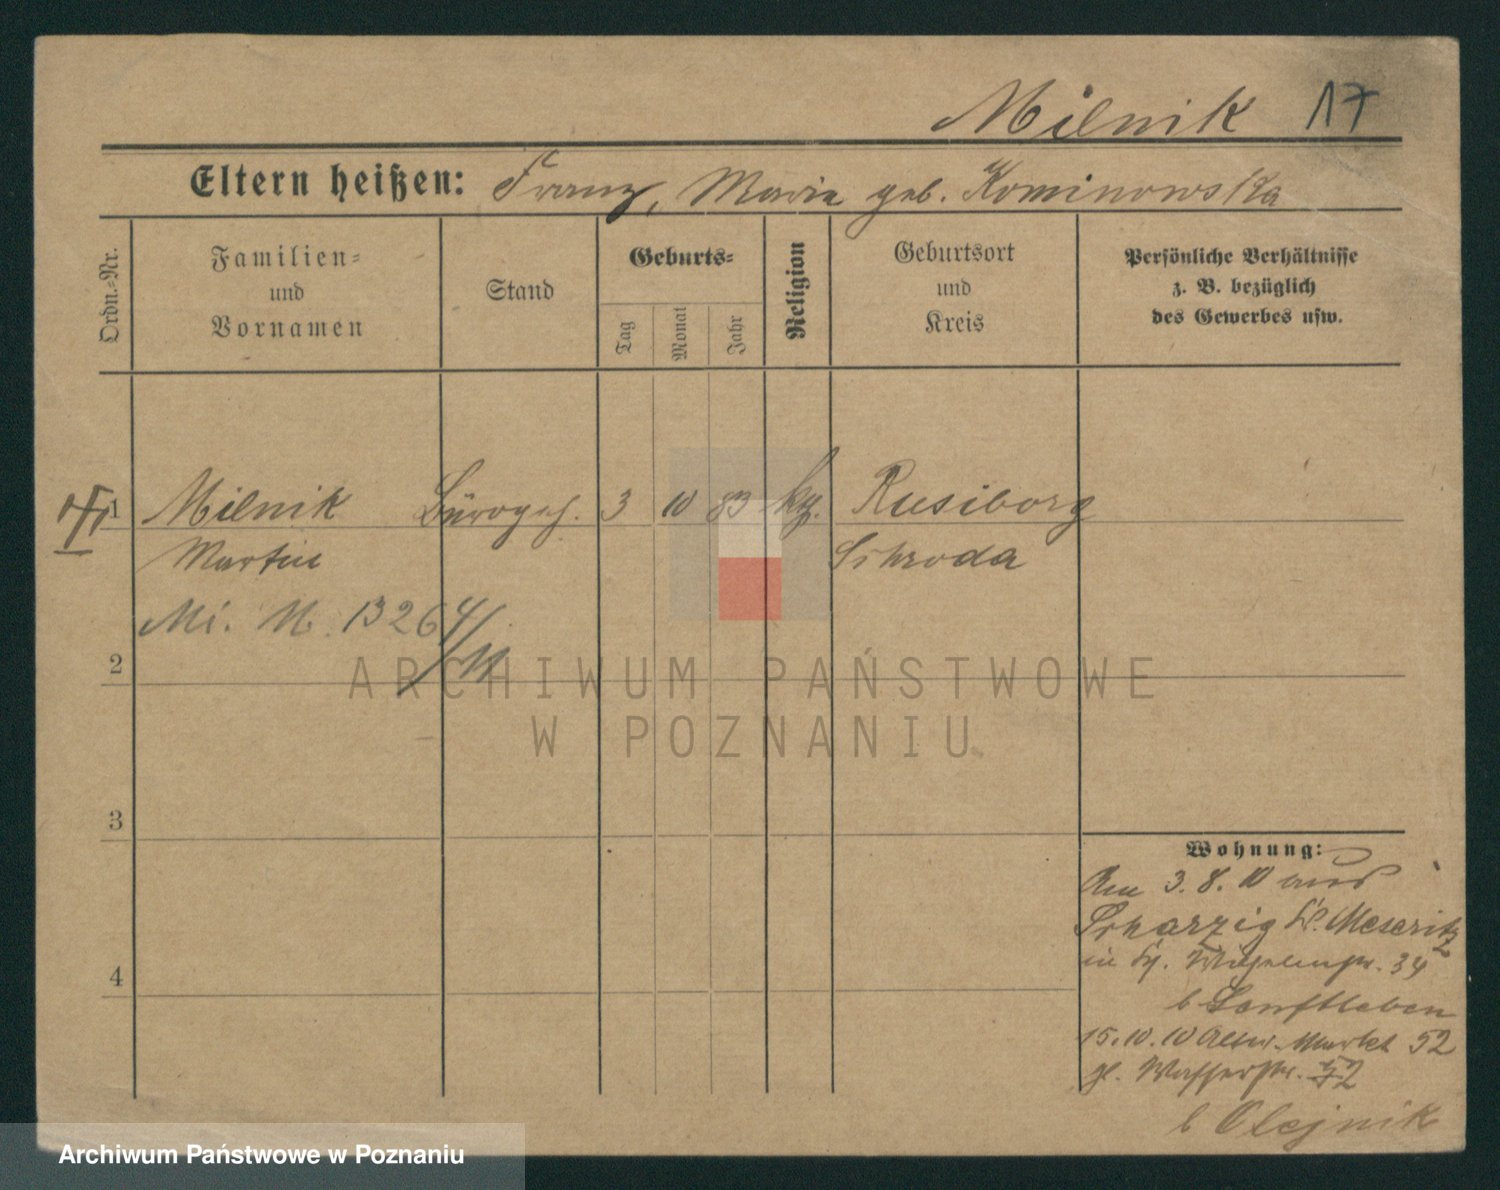 Milnik 17
Eltern heißen: Franz, Marie geb. Kominowska
Ordn.=Nr.
Familien=
und
Vornamen
Stand
Geburts=
Tag
Monat
Jahr
Religion
Geburtsort
und
Kreis
Persönliche Verhältnisse
z. B. bezüglich
des Gewerbes usw.
1 Milnik Bürogeh. 3 10 83 kg. Rusiborg
Martin Schroda
Mi. N. 13264/11
2
ARCHIWUM PAŃSTWOWE
W POZNANIU
3
4
Wohnung:
Am 3.8.10 aus
Scharzig Kr. Meseritz
in 34
b Senftleben
15.10.10 Alter Markt 52
gl. Wasserstr.
b Olejnik
Archiwum Państwowe w Poznaniu